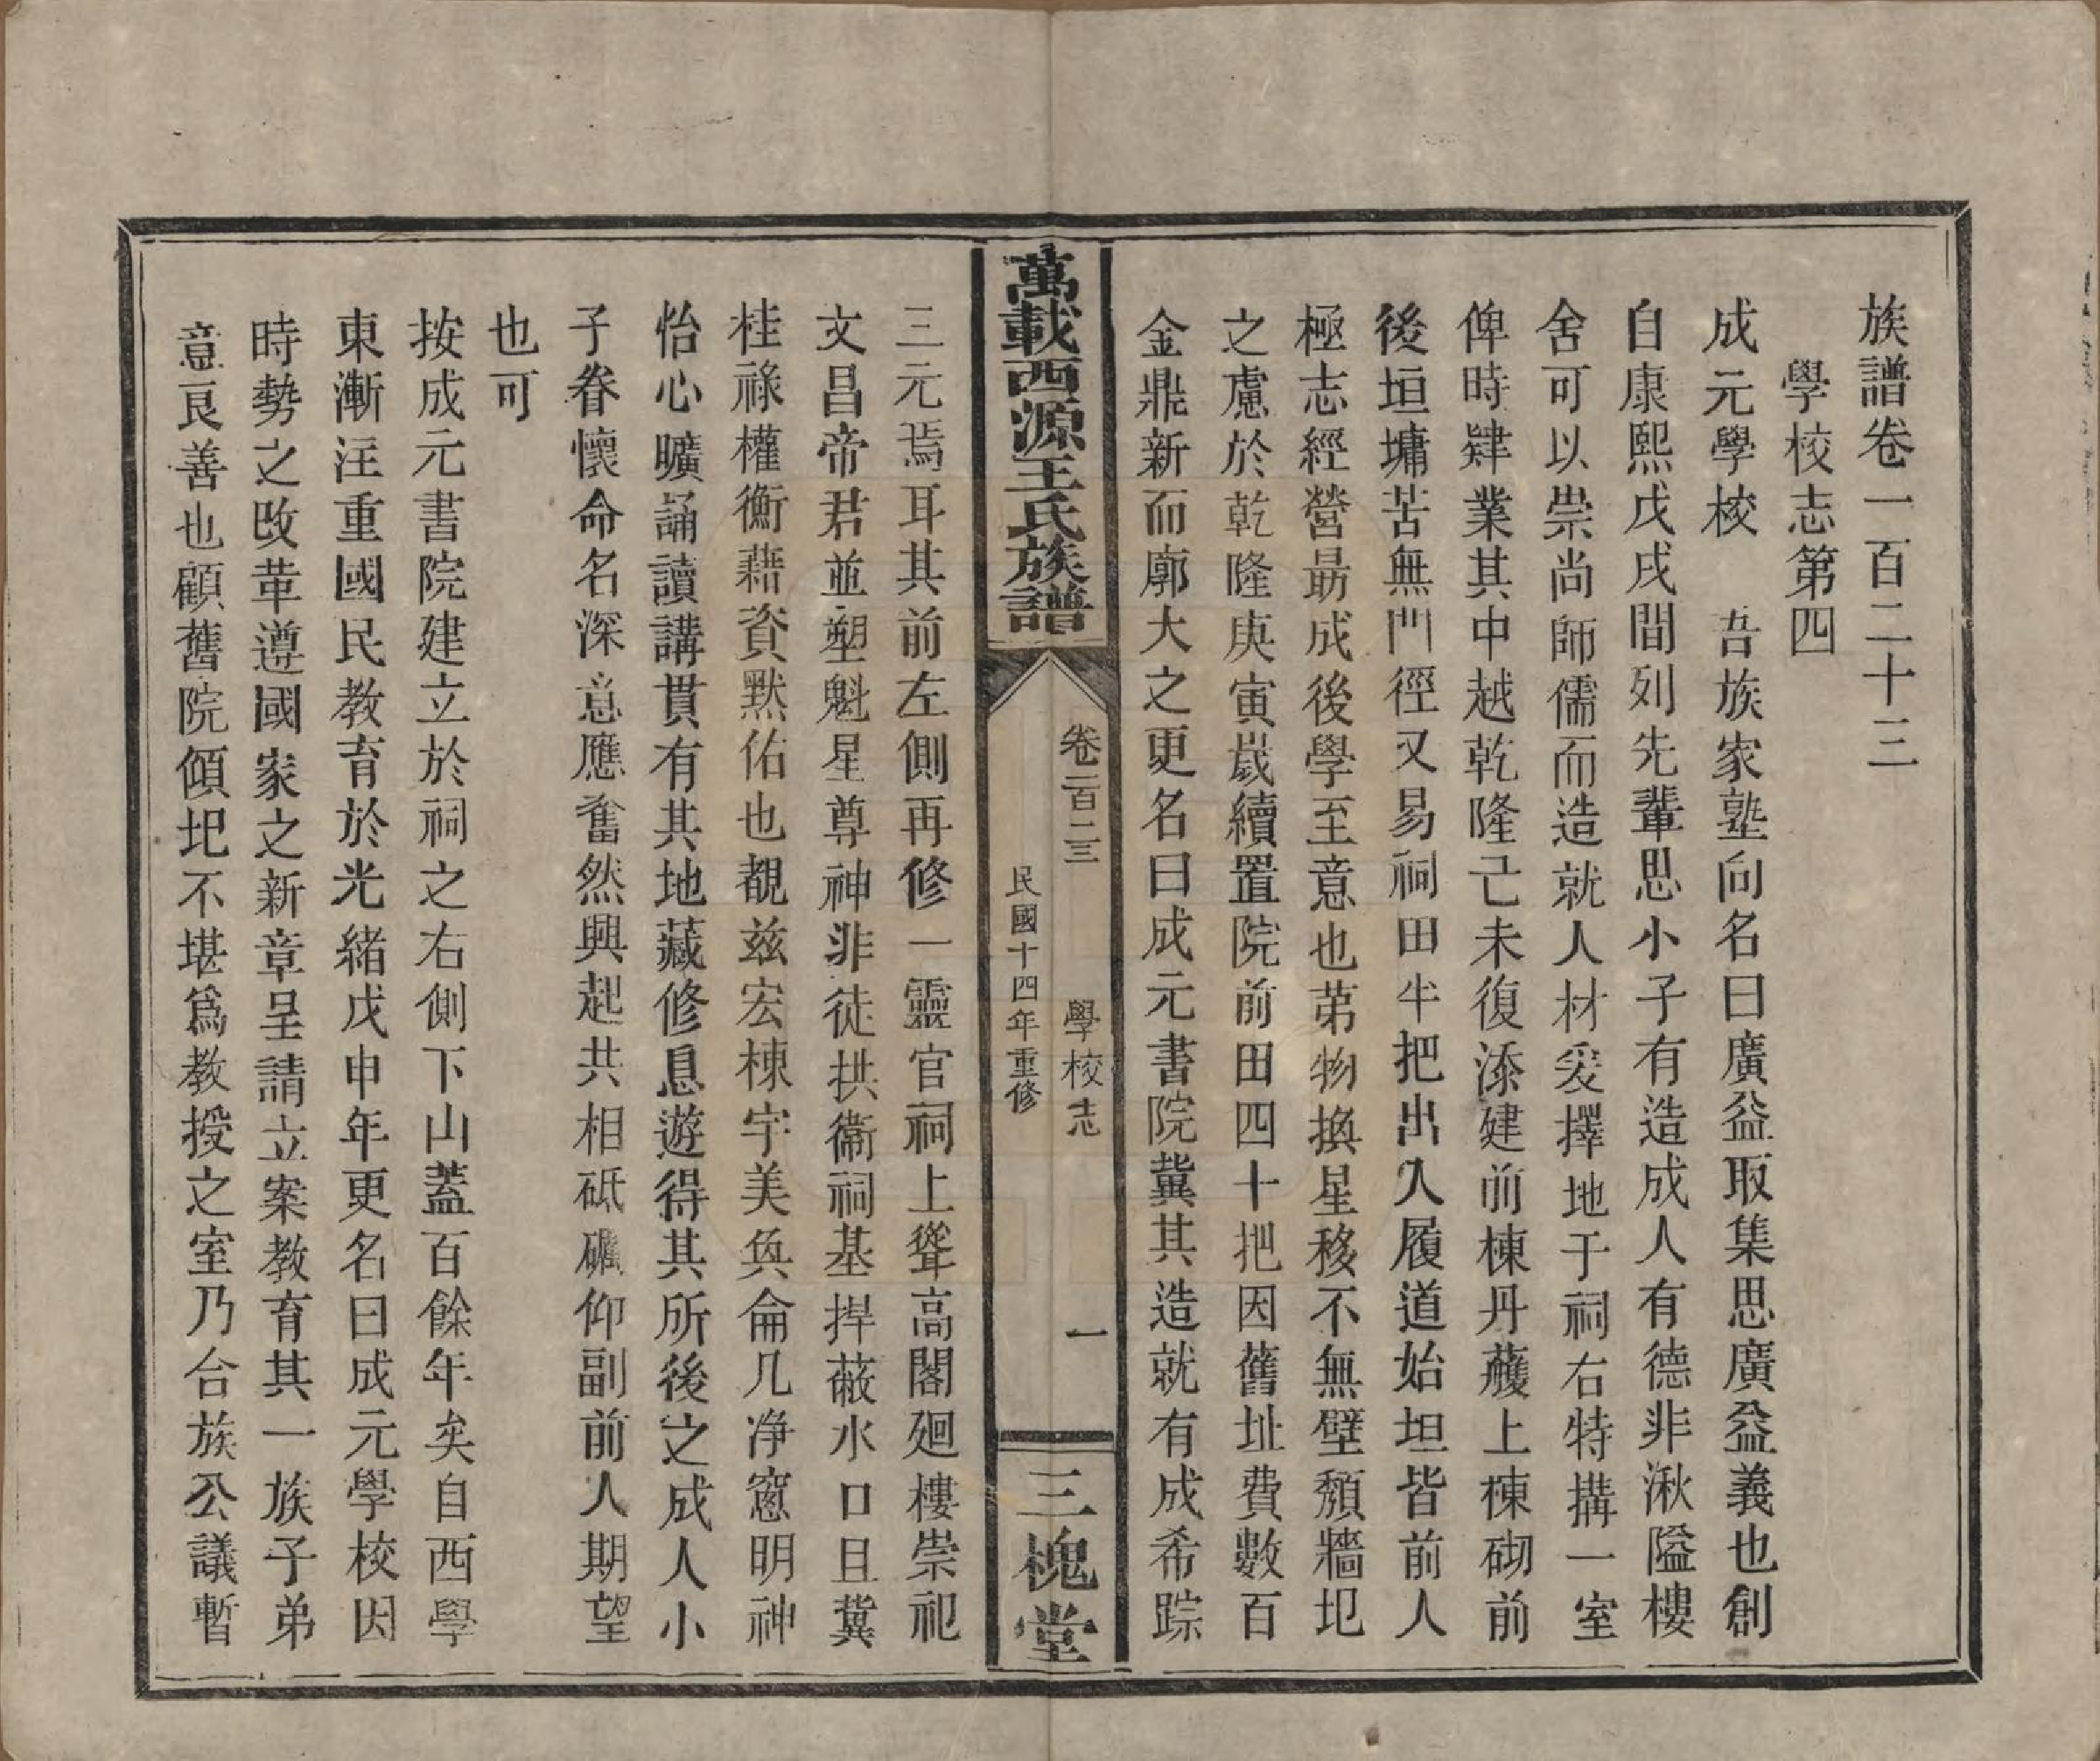 族譜卷一百二十三
學校志第四
成元學校　吾族家塾向名曰廣益取集思廣益義也創
自康熙戊戌間列先輩思小子有造成人有德非湫隘樓
舍可以崇尚師儒而造就人材爰擇地于祠右特搆一室
俾時肄業其中越乾隆己未復添建前棟丹雘上棟砌前
後垣墉苦無門徑又易祠田半把出入履道始坦皆前人
極志經營勗成後學至意也苐物換星移不無壁頹牆圯
之慮於乾隆庚寅嵗續置院前田四十把因舊址費數百
金鼎新而廓大之更名曰成元書院冀其造就有成希踪
萬載西源王氏族譜
卷一百二十三
學校志
一
民國十四年重修
三槐堂
三元焉耳其前左側再修一靈官祠上聳高閣廻樓崇祀
文昌帝君並塑魁星尊神非徒拱衞祠基捍蔽水口且冀
桂祿權衡藉資默佑也覩兹宏棟宇美奐侖几净窻明神
怡心曠誦讀講貫有其地藏修息遊得其所後之成人小
子眷懷命名深意應奮然興起共相砥礪仰副前人期望
也可
按成元書院建立於祠之右側下山蓋百餘年矣自西學
東漸注重國民教育於光緒戊申年更名曰成元學校因
時勢之改革遵國家之新章呈請立案教育其一族子弟
意良善也顧舊院傾圯不堪爲教授之室乃合族公議暫